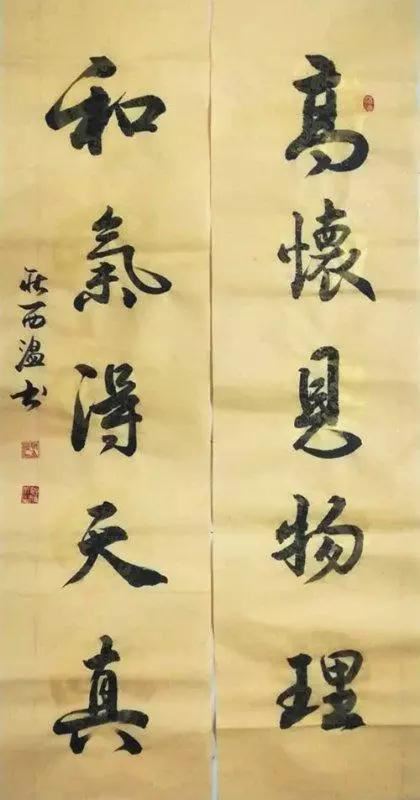 高懷見物理
和氣得天真
西溫书